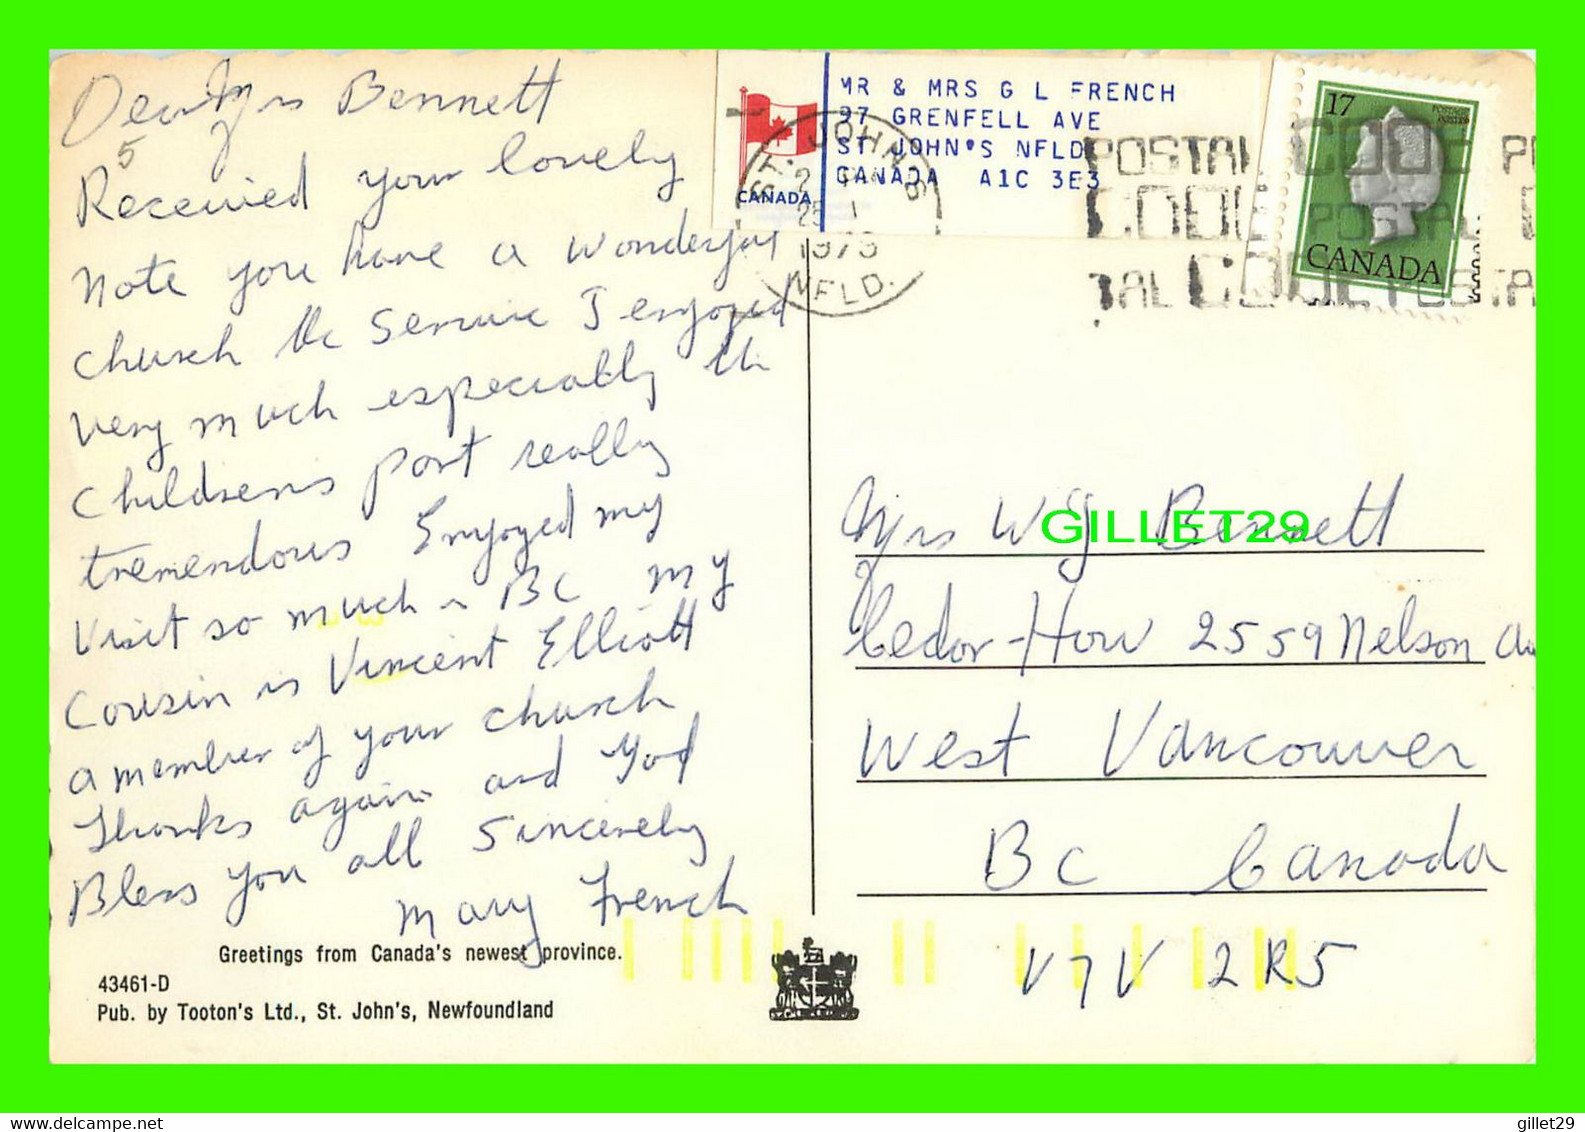 Dear Mrs Bennett
Received your lovely
note you have a wonderful
church the Service I enjoyed
very much especially the
Childrens part really
tremendous Enjoyed my
Visit so much in BC my
Cousin is Vincent Elliott
a member of your church
Thanks again and God
Bless you all Sincerely
Mary French
Greetings from Canada's newest province.
43461-D
Pub. by Tooton's Ltd., St. John's, Newfoundland
CANADA
MR & MRS G L FRENCH
97 GRENFELL AVE
ST JOHN'S NFLD
CANADA A1C 3E3
ST. JOHN'S
1979
NFLD.
POSTAL CODE
CODE POSTAL
17
CANADA
Mrs W J Bennett
Cedar-How 2559 Nelson Av
West Vancouver
BC Canada
V7V 2R5
GILLET29
gillet29